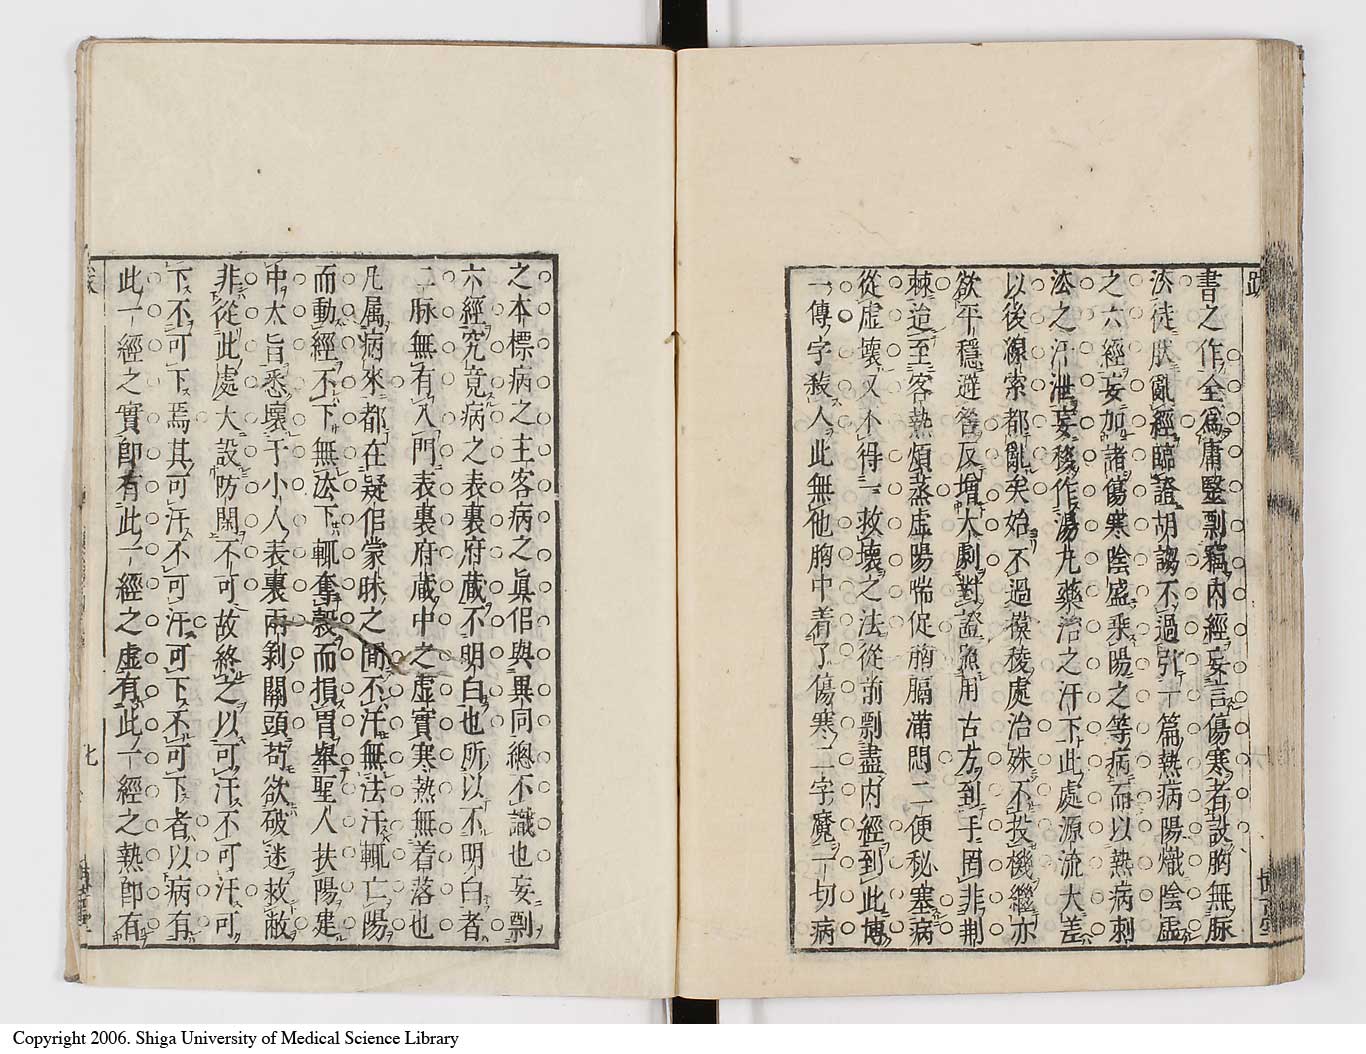 書之作全爲庸醫剽竊内經妄言傷寒者設胸無脉
法徒肰亂經臨證胡謅不過引一篇熱病陽熾陰虛
之六經妄加諸傷寒陰盛乘陽之等病而以熱病刺
法之汗泄妄移作湯丸藥治之汗下此處源流大差
以後線索都亂矣始不過模稜處治殊不投機繼亦
欲平穩避咎反增大劇對證漁用古方到手罔非荆
棘迨至客熱煩蒸虛陽喘促胸膈滿悶二便秘塞病
從虛壞又不得一救壞之法從前剽盡内經到此博
一傳字殺人此無他胸中着了傷寒二字魔一切病
之本標病之主客病之眞假與異同總不識也妄剽
六經究竟病之表裏府藏不明白也所以不明白者
二脉無有入門表裏府藏中之虛實寒熱無着落也
凡属病來都在疑似蒙昧之間不汗無法汗輒亡陽
而動經不下無法下輒奪穀而損胃舉聖人扶陽建
中大旨悉壞于小人表裏兩剝關頭苟欲破迷救敝
非從此處大設防閑不可故終之以可汗不可汗可
下不可下焉其可汗不可汗可下不可下者以病有
此一經之實即有此一經之虛有此一經之熱即有
七
Copyright 2006. Shiga University of Medical Science Library